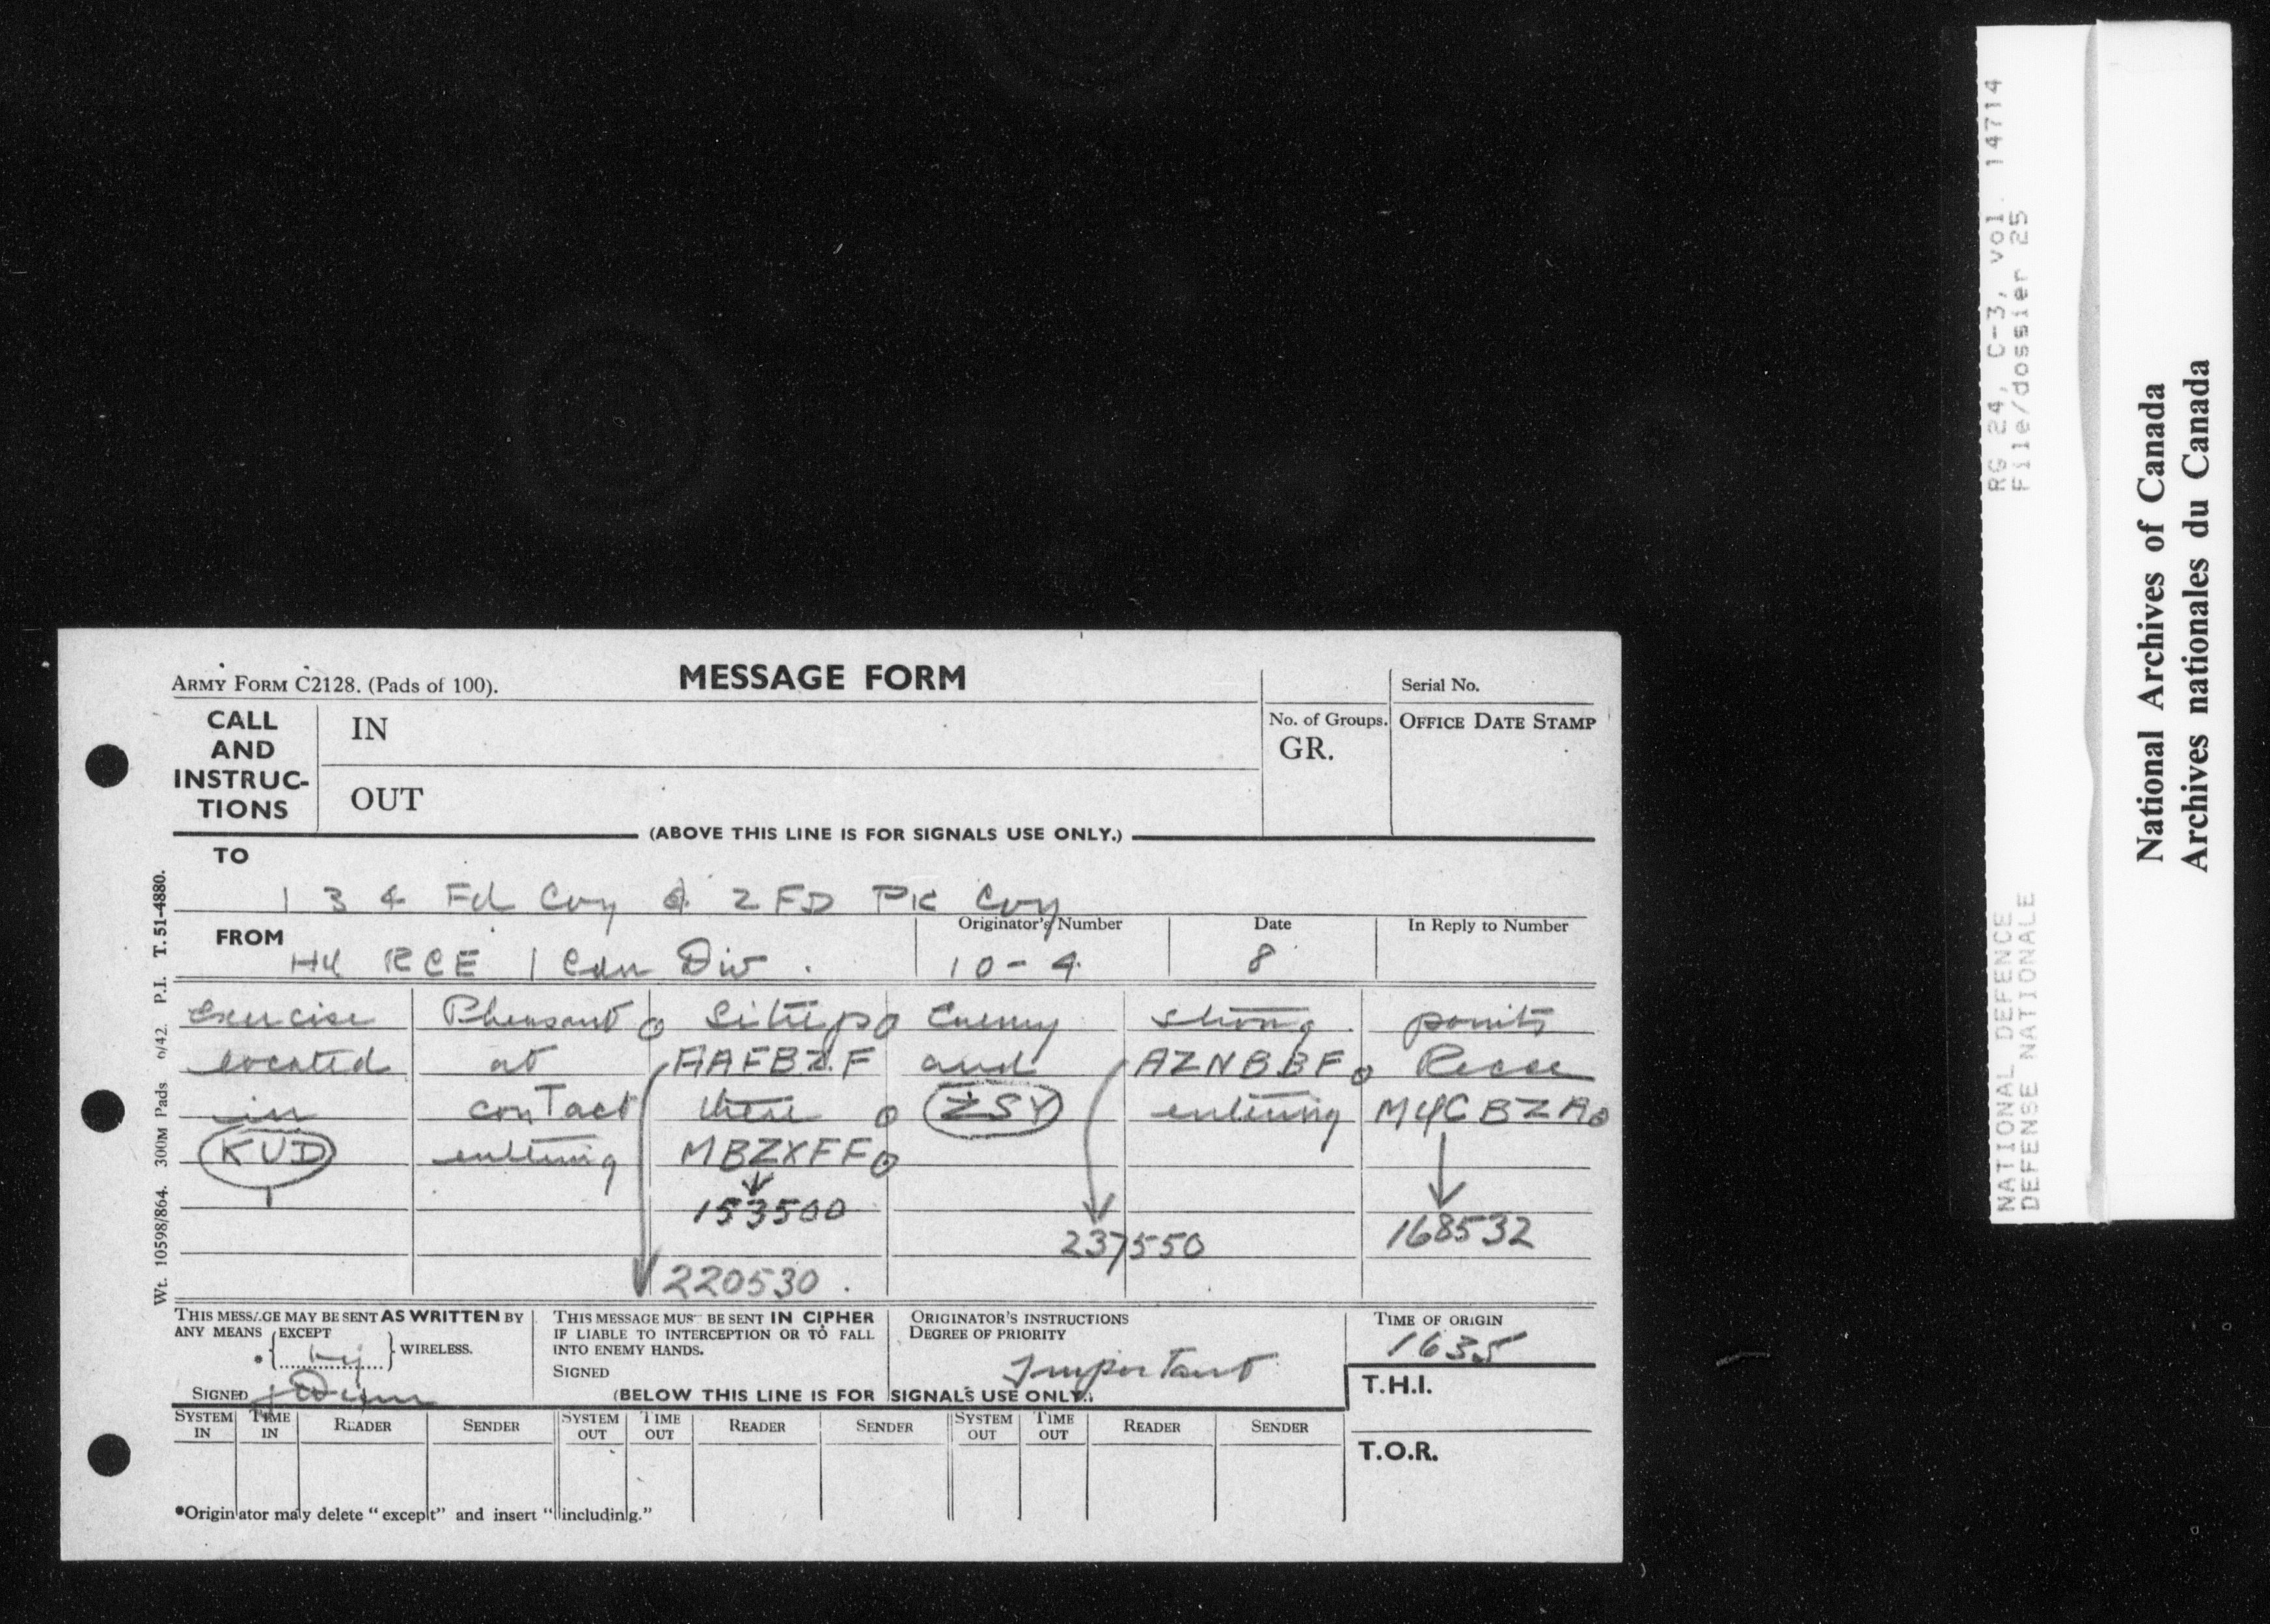 ARMY FORM C2128. (Pads of 100).
MESSAGE FORM
Serial No.
CALL AND INSTRUC- TIONS
IN
No. of Groups.
GR.
OFFICE DATE STAMP
OUT
(ABOVE THIS LINE IS FOR SIGNALS USE ONLY.)
TO
1 3 4 Fd Coy & 2 FD PK Coy
FROM
Originator's Number
Date
In Reply to Number
HQ RCE 1 Cdn Div .
10-4
8
Exercise Pheasant o Sitrep o Enemy strong points
located at AAFBZF and AZNBBF o Recce
in contact there o ZSY entering MYCBZA o
KUD entering MBZXFF o
153500
237550
168532
220530 .
THIS MESSAGE MAY BE SENT AS WRITTEN BY
ANY MEANS { EXCEPT } WIRELESS.
SIGNED
THIS MESSAGE MUST BE SENT IN CIPHER
IF LIABLE TO INTERCEPTION OR TO FALL
INTO ENEMY HANDS.
SIGNED
ORIGINATOR'S INSTRUCTIONS
DEGREE OF PRIORITY
Important
TIME OF ORIGIN
1635
(BELOW THIS LINE IS FOR SIGNALS USE ONLY.)
T.H.I.
SYSTEM IN TIME IN READER SENDER SYSTEM OUT TIME OUT READER SENDER SYSTEM OUT TIME OUT READER SENDER
T.O.R.
*Originator may delete "except" and insert "including."
Wt. 10598/864. 300M Pads 6/42. P.I. T. 51-4880.
RG 24, C-3, vol. 14714
File/dossier 25
NATIONAL DEFENCE
DEFENSE NATIONALE
National Archives of Canada
Archives nationales du Canada